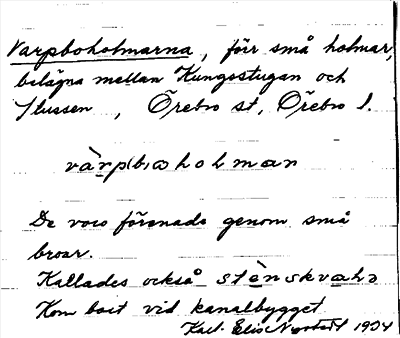 Varpboholmarna, förr små holmar,
belägna mellan Kungsstugan och
Slussen, Örebro st, Örebro l.
vàrp(b)aholman
De voro förenade genom små
broar.
Kallades också stènskvaha
Kom bort vid kanalbygget
Karl Elis 1934